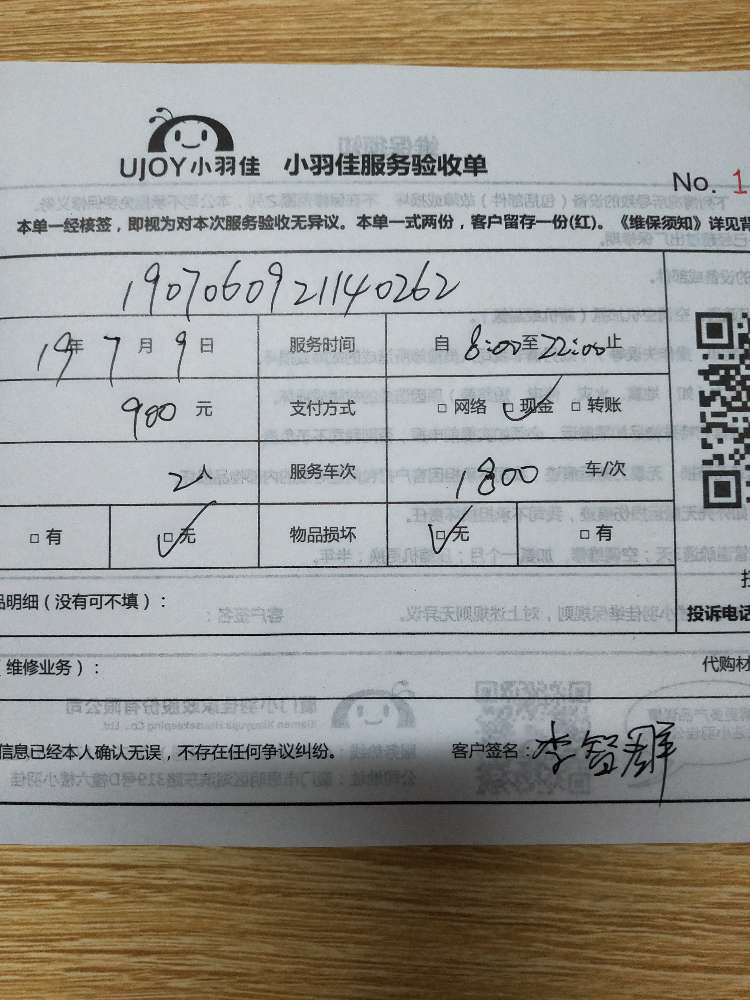 UJOY小羽佳 小羽佳服务验收单
No. 1
本单一经核签，即视为对本次服务验收无异议。本单一式两份，客户留存一份(红)。《维保须知》详见背
1907060921140262
19年 7月 9日 服务时间 自 8:00至22:00止
900元 支付方式 □ 网络 □ 现金 □ 转账
2人 服务车次 1800 车/次
□ 有 □ 无 物品损坏 □ 无 □ 有
品明细（没有可不填）：
投诉电话
（维修业务）： 代购材
信息已经本人确认无误，不存在任何争议纠纷。 客户签名：李智群